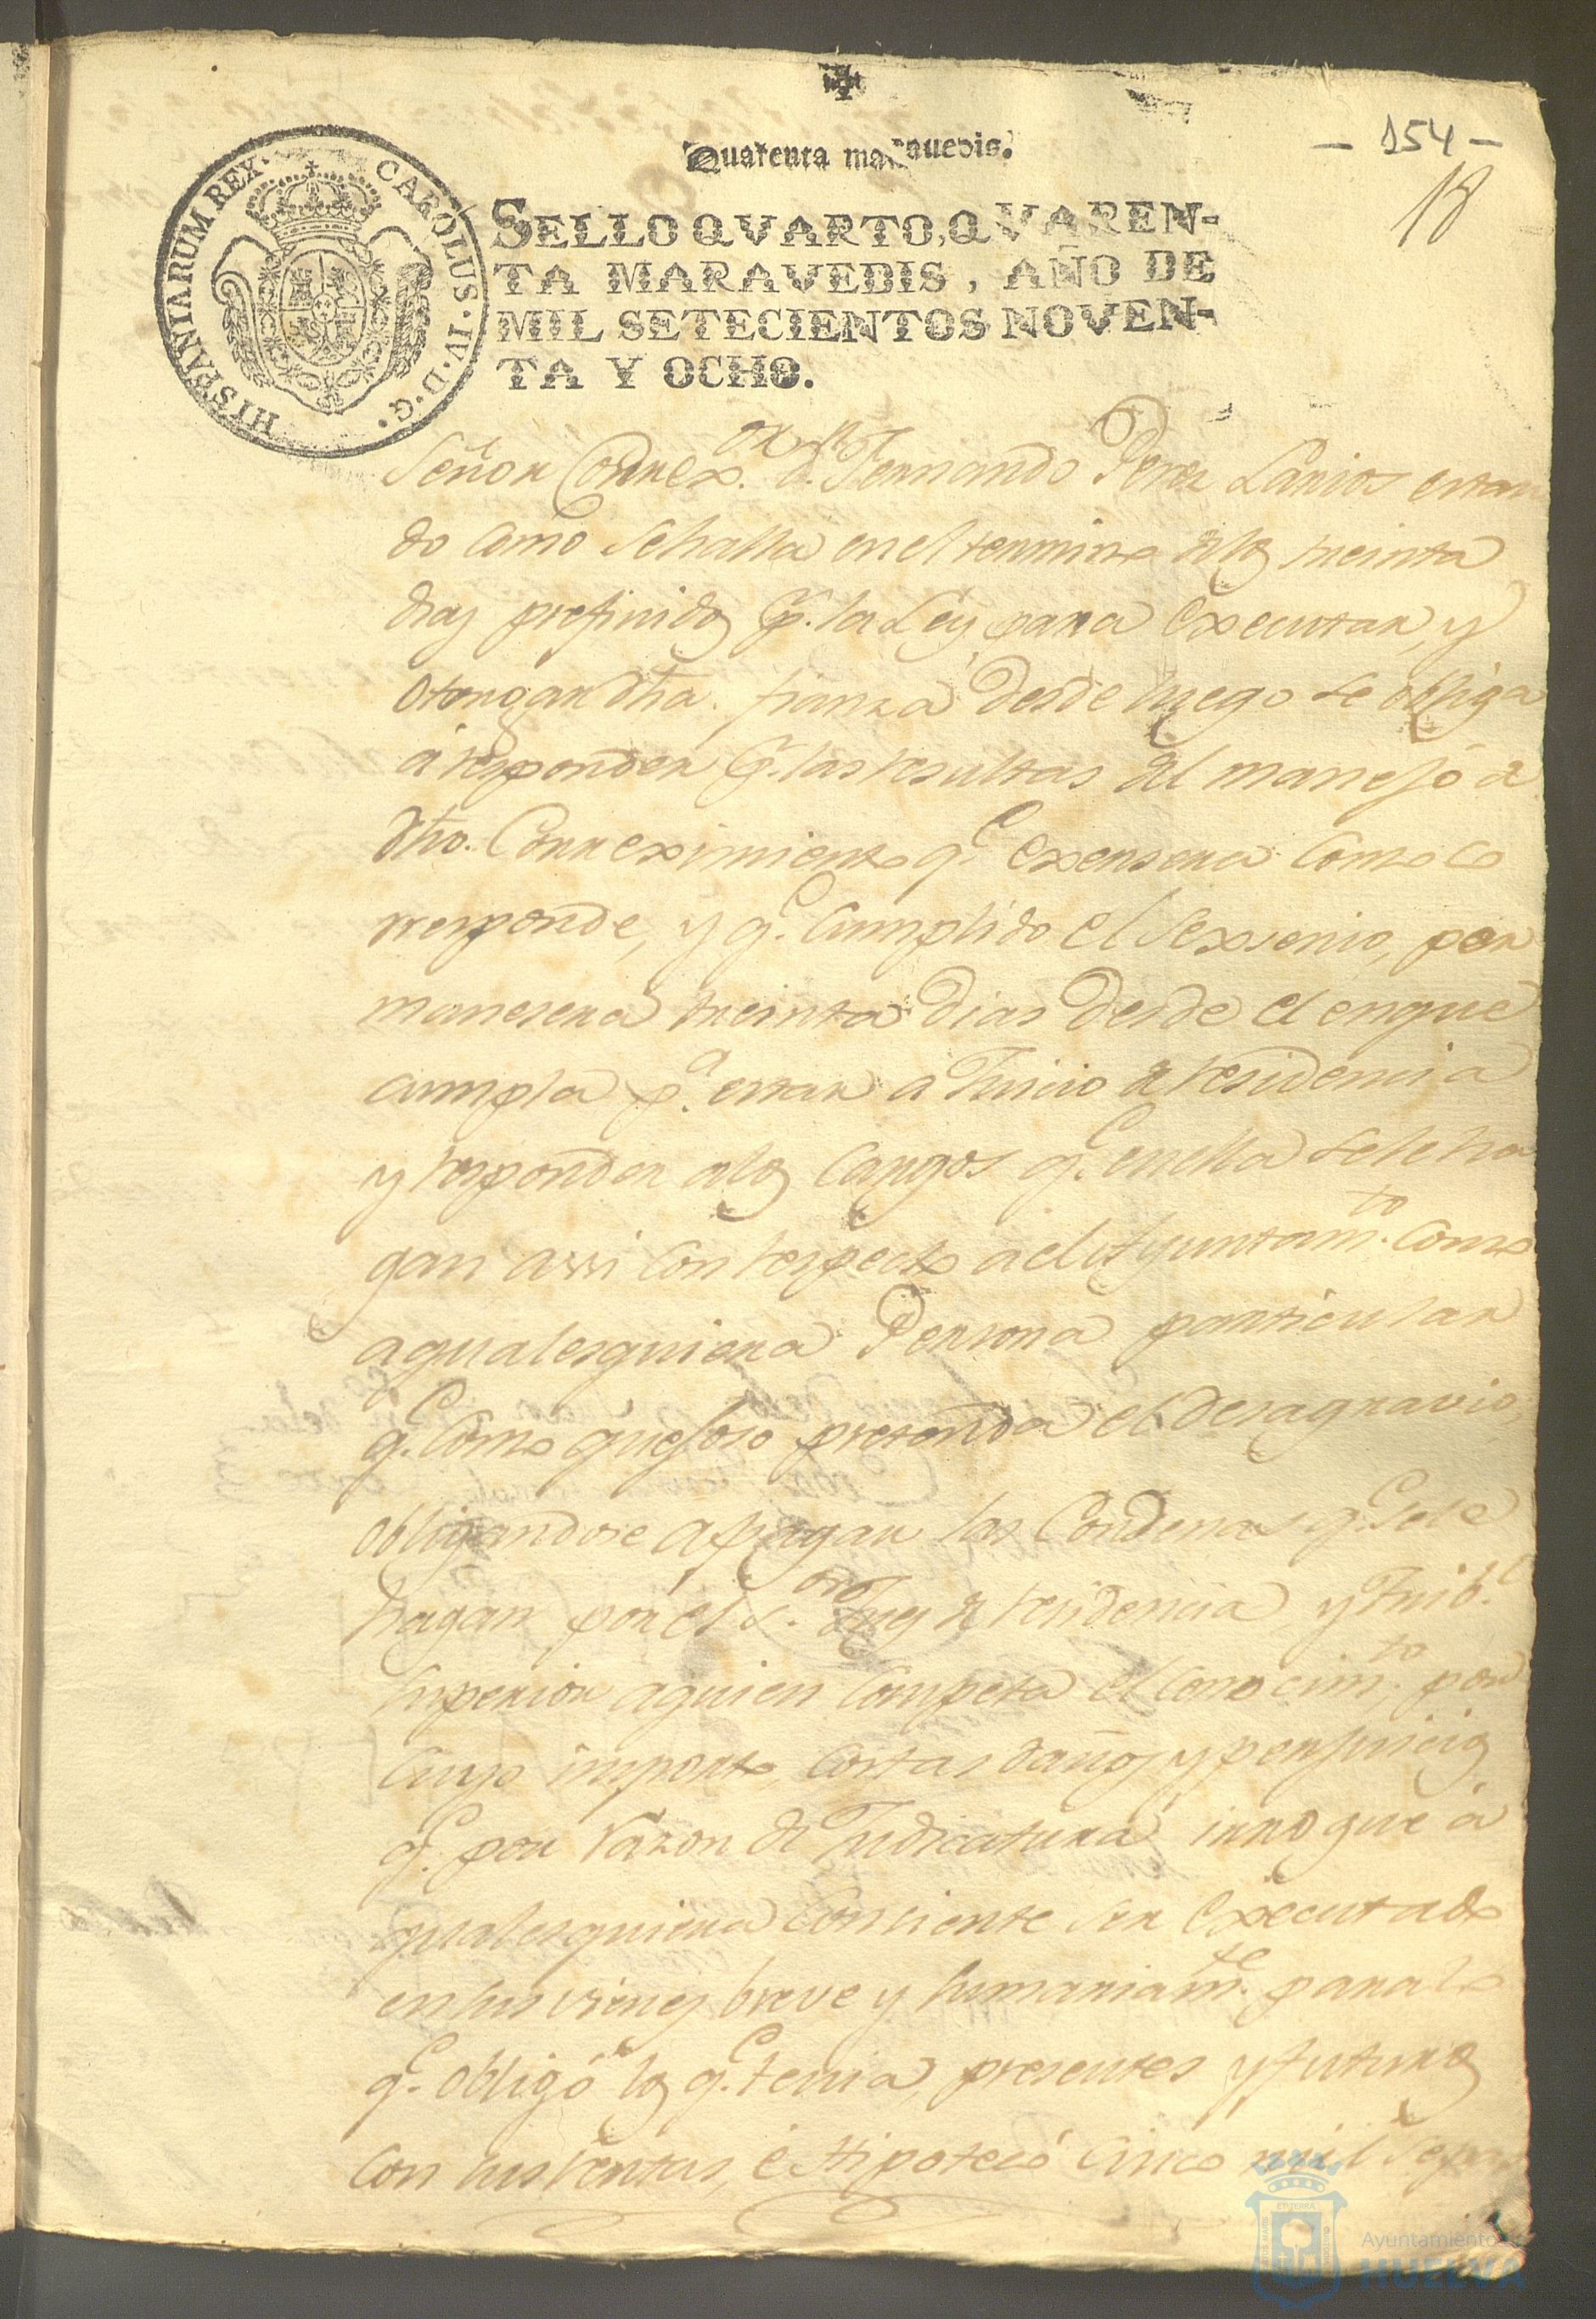 Quarenta marauedis.
- 154 -
18
HISPANIARUM REX. CAROLUS. IV. D. G.
SELLO QVARTO, QVAREN-
TA MARAVEDIS, AÑO DE
MIL SETECIENTOS NOVEN-
TA Y OCHO.
Señor Correx.or Dn. Fernando Perez Larios estan
do como se halla en el termino de los treinta
dias prefinidos pr. la Ley para executar, y
otorgar dha. fianza desde luego se obliga
á responder pr. las resultas del manejo de
dho. Correximiento qe. exersera como co
rresponde, y qe. cumplido el sexsenio, per
manesera treinta dias desde el en que
cumpla pa. estar a Juicio de residencia
y responder a los cargos qe. en ella se le ha
gan assi con respecto a el Ayuntamto. como
a qualesquiera Persona particular
qe. como quejoso pretenda el desagravio,
obligandose a pagar las Condenas qe. se le
hagan por el Sor. Juez de residencia, y Tribl.
superior a quien competa el conocimto. por
cuyo importe, costas daños y perjuicios
qe. por razon de Judicatura irrogue á
qualesquiera consiente ser executado
en sus vienes breve y sumariamte. para lo
qe. obligó los qe. tenia, presentes y futuros
con sus rentas, é Hipotecó cinco mil
Ayuntamiento de
HUELVA